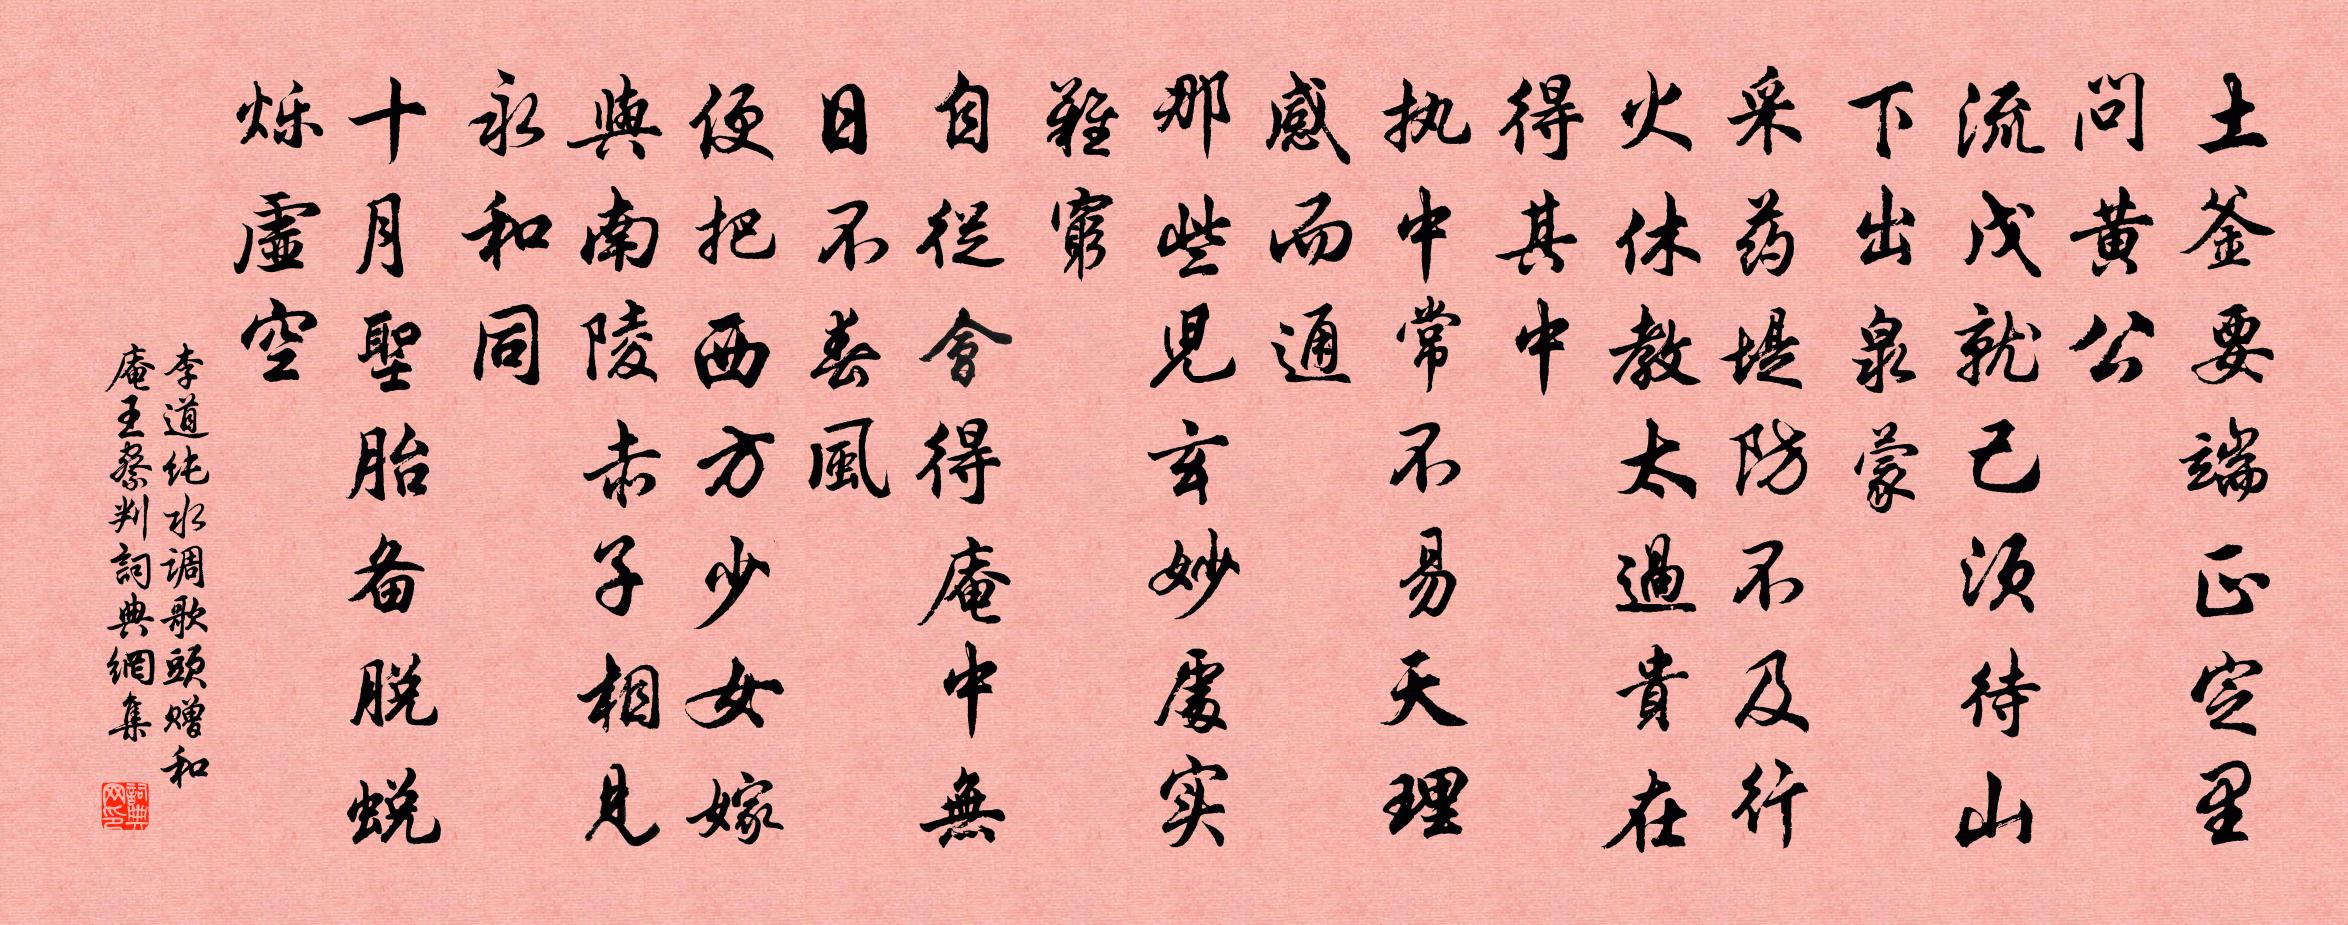 土釜要端正定里
问黄公
流戊就己须待山
下出泉蒙
采药堤防不及行
火休教太過貴在
得其中
执中常不易天理
感而通
那些兒玄妙處实
難窮
自從會得庵中無
日不春風
便把西方少女嫁
與南陵赤子相見
永和同
十月聖胎备脱蜕
烁虛空
李道纯水调歌頭赠和
庵王察判詞典網集
詞典网印